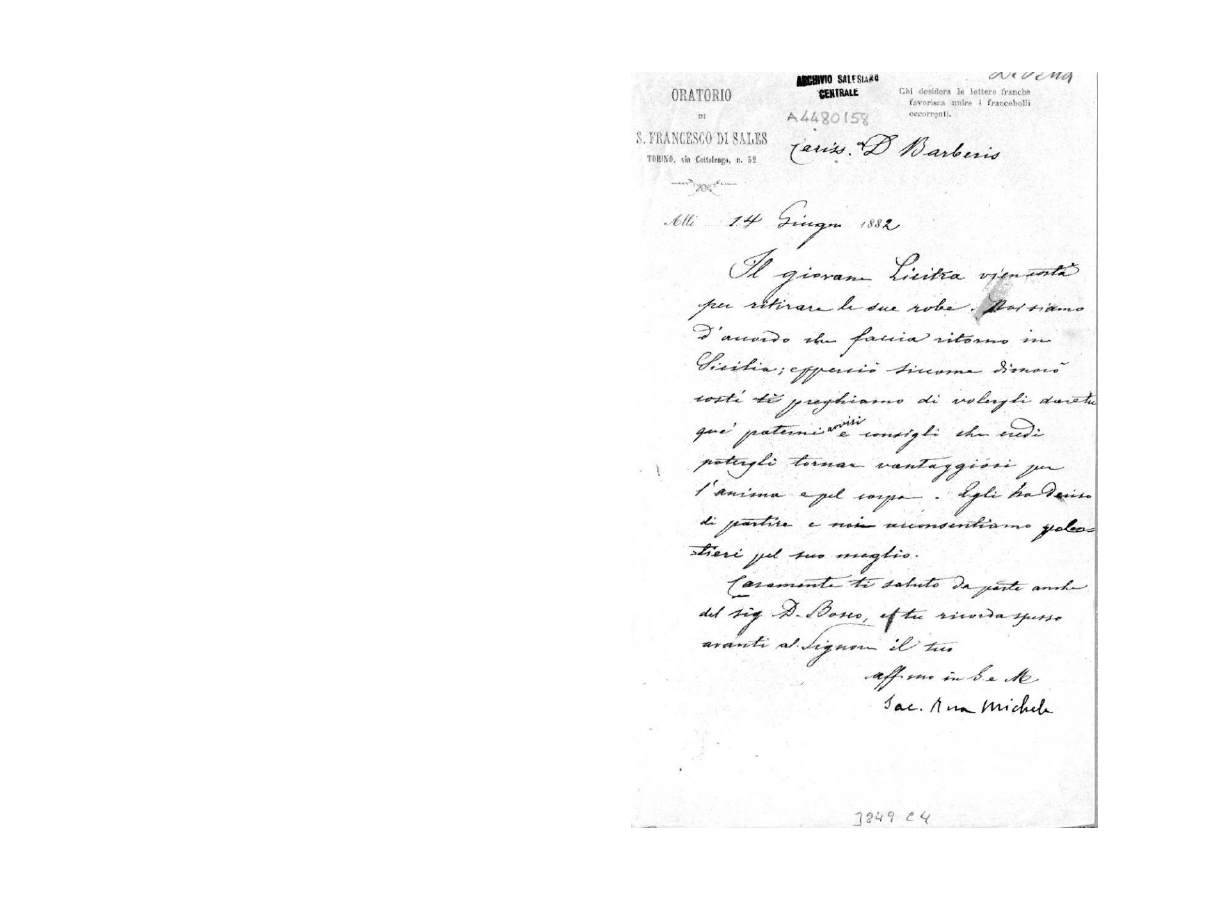 ARCHIVIO SALESIANO
CENTRALE
ORATORIO
DI
S. FRANCESCO DI SALES
TORINO, via Cottolengo, n. 32
Chi desidera le lettere franche
favorisca unire i francobolli
occorrenti.
A4480158
Cariss. D Barberis
Alli 14 Giugno 1882
Il giovane Licitra vien costà
per ritirare le sue robe. Noi siamo
d'accordo che faccia ritorno in
Sicilia; epperciò siccome dimorò
costì ti preghiamo di volergli dare tu
que' paterni avvisi e consigli che credi
potergli tornar vantaggiosi per
l'anima e pel corpo. Egli ha deciso
di partire e noi acconsentiamo volen=
tieri pel suo meglio.
Caramente ti saluto da parte anche
del sig D. Bosco, e tu ricorda spesso
avanti al Signore il tuo
aff.mo in G e M
Sac. Rua Michele
3849 C4